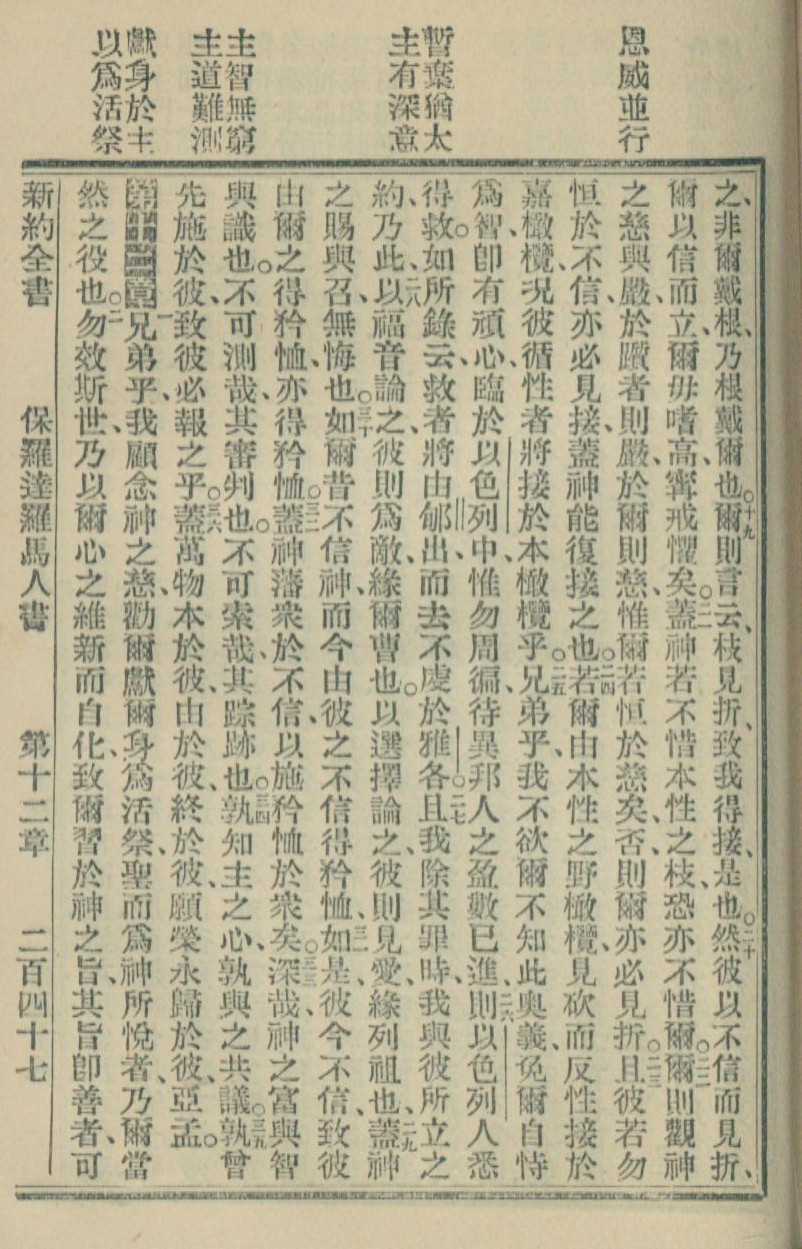 恩威並行
暫棄猶太
主有深意
主智無窮
主道難測
獻身於主
以爲活祭
之、非爾戴根、乃根戴爾也。十九爾則言云、枝見折、致我得接、是也。二十然彼以不信而見折、
爾以信而立、爾毋嗜高、寗戒懼矣。二一蓋神若不惜本性之枝、恐亦不惜爾。二二爾則觀神
之慈與嚴、於躓者則嚴、於爾則慈、惟爾若恒於慈矣、否則爾亦必見折。二三且彼若勿
恒於不信、亦必見接、蓋神能復接之也。二四若爾由本性之野橄欖、見砍而反性接於
嘉橄欖、况彼循性者、將接於本橄欖乎。二五兄弟乎、我不欲爾不知此奧義、免爾自恃
爲智、卽有頑心臨於以色列中、惟勿周徧、待異邦人之盈數已進、二六則以色列人悉
得救。如所錄云、救者將由郇出、而去不虔於雅各。二七且我除其罪時、我與彼所立之
約、乃此、二八以福音論之、彼則爲敵、緣爾曹也。以選擇論之、彼則見愛、緣列祖也、二九蓋神
之賜與召、無悔也。三十如爾昔不信神、而今由彼之不信得矜恤、三一如是、彼今不信、致彼
由爾之得矜恤、亦得矜恤。三二蓋神藩衆於不信、以施矜恤於衆矣。三三深哉、神之富與智
與識也。不可測哉、其審判也。不可索哉、其踪跡也。三四孰知主之心、孰與之共議。三五孰曾
先施於彼、致彼必報之乎。三六蓋萬物本於彼、由於彼、終於彼、願榮永歸於彼、亞孟。
一兄弟乎、我願念神之慈、勸爾獻爾身爲活祭、聖而爲神所悅者、乃爾當
然之役也。二勿效斯世、乃以爾心之維新而自化、致爾習於神之旨、其旨卽善者、可
新約全書　保羅達羅馬人書　第十二章　二百四十七